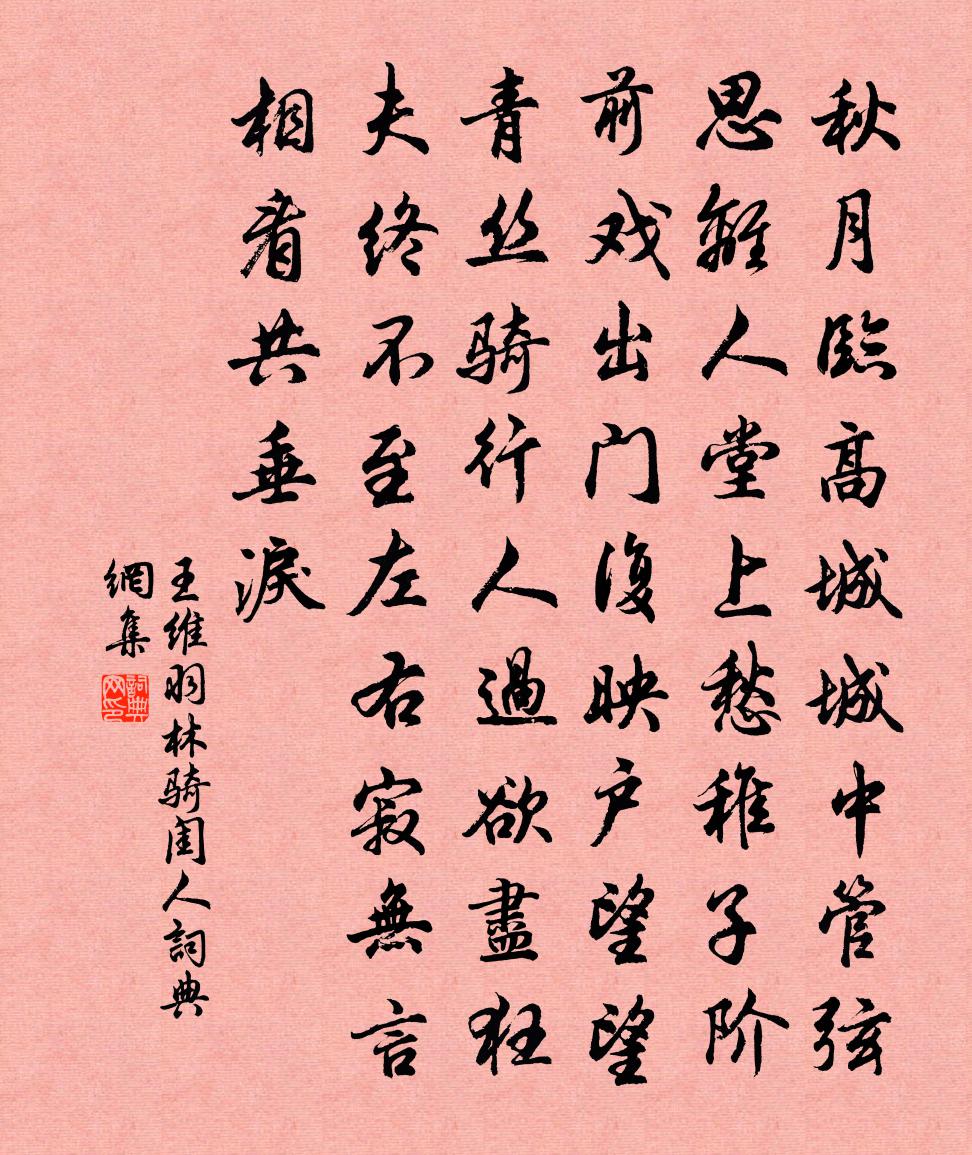 秋月臨高城城中管弦
思離人堂上愁稚子阶
前戏出门復映户望望
青丝骑行人過欲盡狂
夫终不至左右寂無言
相看共垂淚
王维羽林骑闺人詞典
網集
詞典
网印